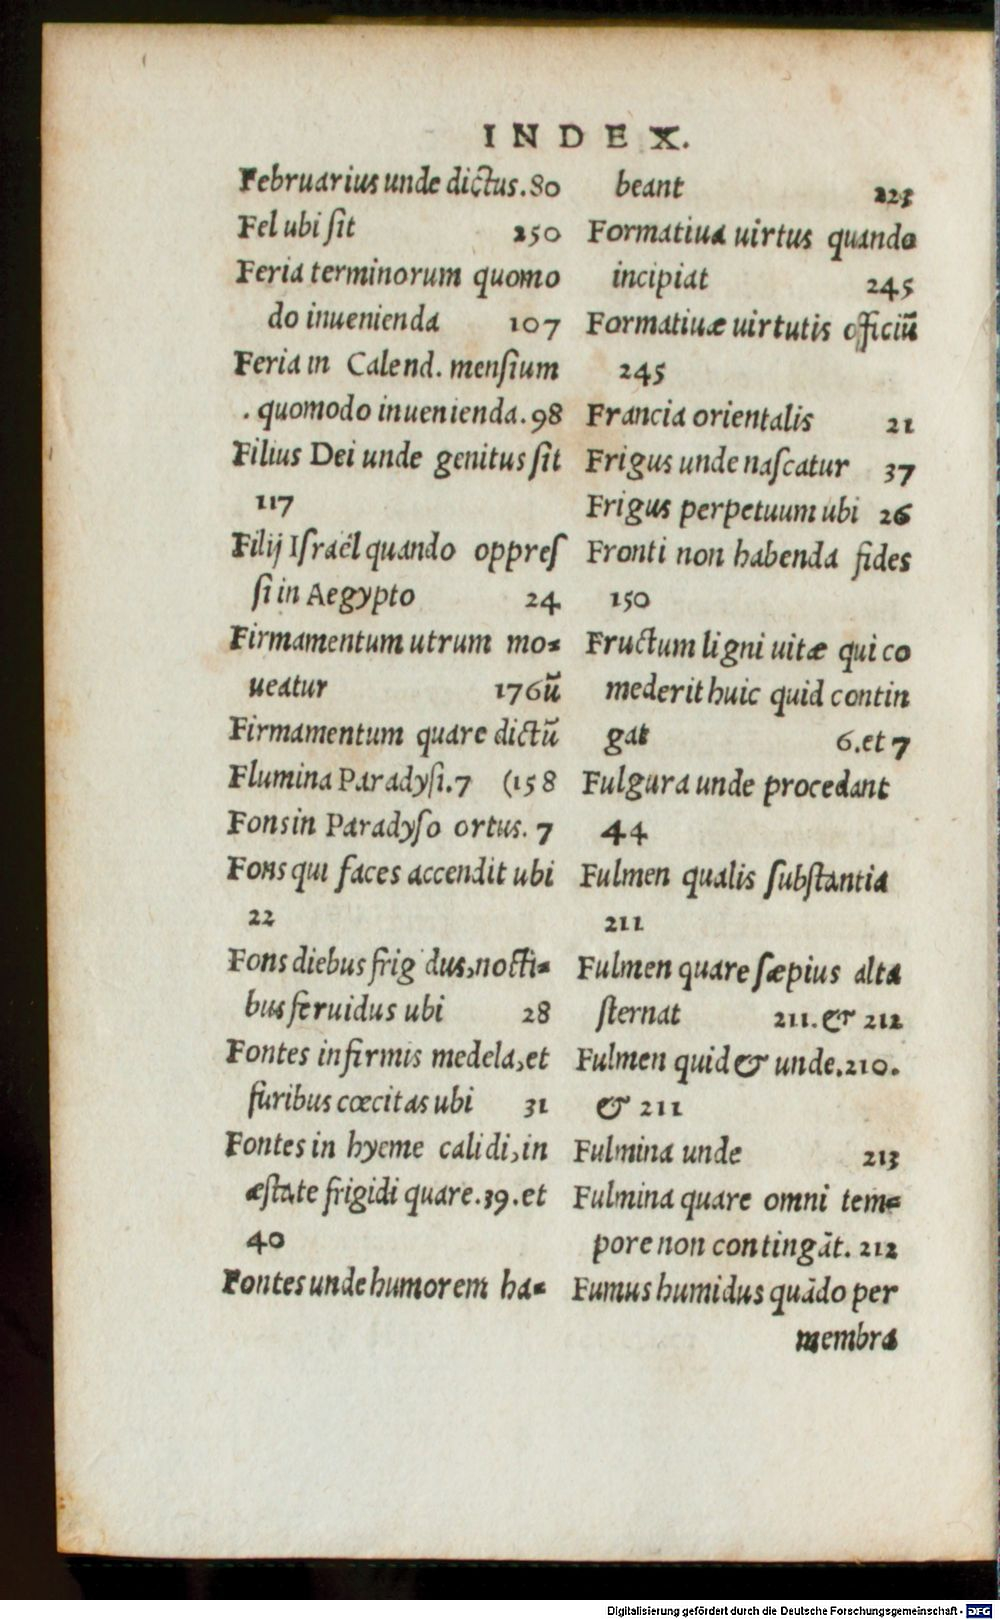 INDEX.
Februarius unde dictus. 80
Fel ubi ſit 250
Feria terminorum quomo
do inuenienda 107
Feria in Calend. menſium
. quomodo inuenienda. 98
Filius Dei unde genitus ſit
117
Filij Iſraël quando oppreſ
ſi in Aegypto 24
Firmamentum utrum mo-
ueatur 176ũ
Firmamentum quare dictũ
Flumina Paradyſi. 7 (158
Fons in Paradyſo ortus. 7
Fons qui faces accendit ubi
22
Fons diebus frigidus, nocti-
bus feruidus ubi 28
Fontes infirmis medela, et
furibus cœcitas ubi 31
Fontes in hyeme calidi, in
æstate frigidi quare. 39. et
40
Fontes unde humorem ha-
beant 223
Formatiua uirtus quando
incipiat 245
Formatiuæ uirtutis officiũ
245
Francia orientalis 21
Frigus unde naſcatur 37
Frigus perpetuum ubi 26
Fronti non habenda fides
150
Fructum ligni uitæ qui co
mederit huic quid contin
gat 6. et 7
Fulgura unde procedant
44
Fulmen qualis ſubſtantia
211
Fulmen quare ſæpius alta
ſternat 211. & 212
Fulmen quid & unde. 210.
& 211
Fulmina unde 213
Fulmina quare omni tem-
pore non contingāt. 212
Fumus humidus quādo per
membra
Digitalisierung gefördert durch die Deutsche Forschungsgemeinschaft - DFG